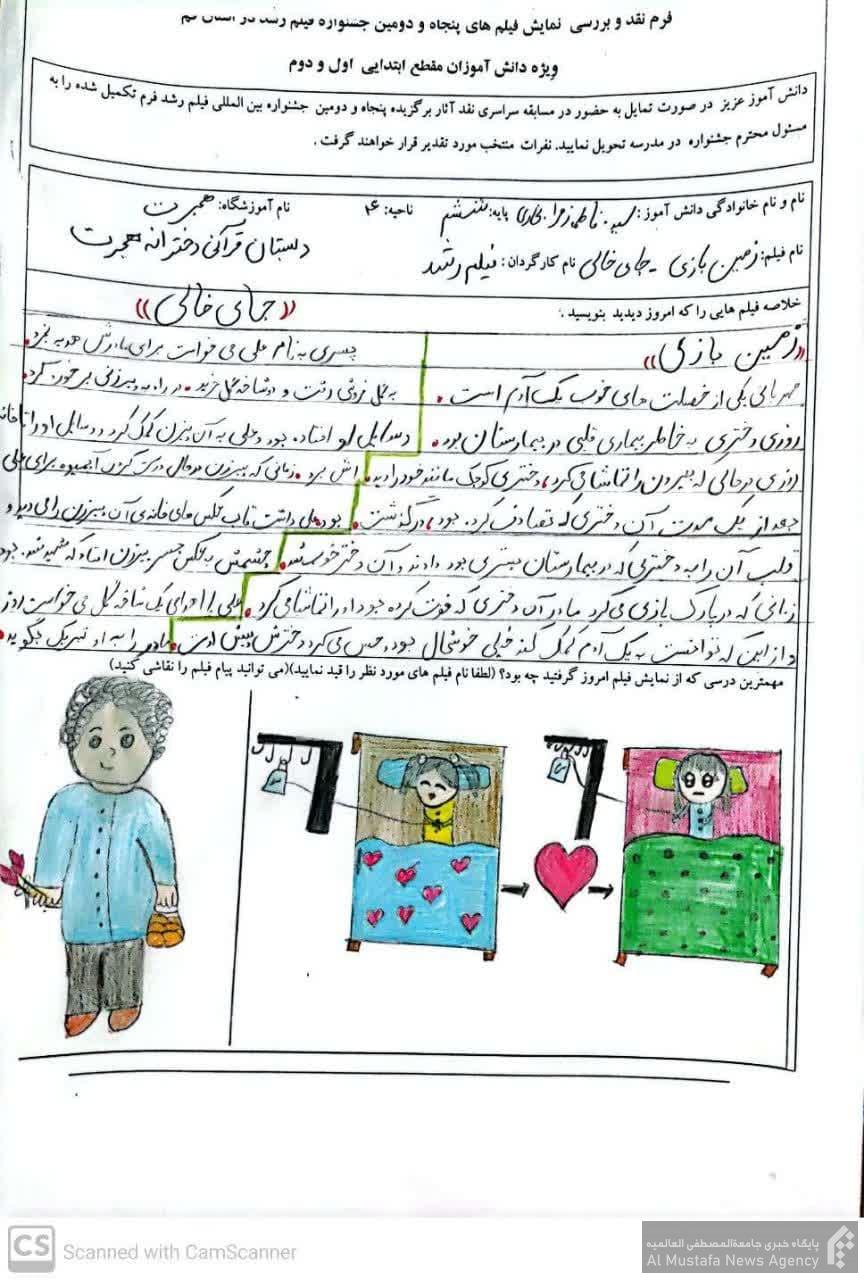 فرم نقد و بررسی نمایش فیلم های پنجاه و دومین جشنواره فیلم رشد در استان قم
ویژه دانش آموزان مقطع ابتدایی اول و دوم
دانش آموز عزیز در صورت تمایل به حضور در مسابقه سراسری نقد آثار برگزیده پنجاه و دومین جشنواره بین المللی فیلم رشد فرم تکمیل شده را به
مسئول محترم جشنواره در مدرسه تحویل نمایید. نفرات منتخب مورد تقدیر قرار خواهند گرفت .
نام و نام خانوادگی دانش آموز: فاطمه زهرا پایه: ششم ناحیه: ۴ نام آموزشگاه: هجرت
دبستان قرآنی دخترانه هجرت
نام فیلم: زمین بازی - جای خالی نام کارگردان: فیلم رشد
خلاصه فیلم هایی را که امروز دیدید بنویسید .
«زمین بازی»
مهربانی یکی از خصلت های خوب یک آدم است .
روزی دختری به خاطر بیماری قلبی در بیمارستان بود.
روزی در حالی که بیرون را تماشا می کرد، دختری کوچک مانند خود را دید.
بعد از یک مدت آن دختری که تصادف کرده بود، درگذشت.
قلب آن را به دختری که در بیمارستان بستری بود دادند و آن دختر خوب شد.
زمانی که در پارک بازی می کرد مادر آن دختری که فوت کرده بود او را تماشا می کرد.
و از این که توانست به یک آدم کمک کند خیلی خوشحال بود و حس می کرد دخترش پیش اوست.
«جای خالی»
پسری به نام علی می خواست برای مادرش هدیه بخرد.
به گل فروشی رفت و دو شاخه گل خرید. در راه به پیرزنی بر خورد کرد
وسایل او افتاده بود و علی به آن پیرزن کمک کرد و وسایل او را تا خانه
اش برد. زمانی که پیرزن در حال درست کردن آبمیوه برای علی
بود علی داشت قاب عکس های خانه ی آن پیرزن را می دید و
چشمش به عکس پسر پیرزن افتاد که شهید شده بود
علی با اهدای یک شاخه گل می خواست روز
مادر را به او تبریک بگوید.
مهمترین درسی که از نمایش فیلم امروز گرفتید چه بود؟ (لطفا نام فیلم های مورد نظر را قید نمایید)(می توانید پیام فیلم را نقاشی کنید)
CS Scanned with CamScanner
پایگاه خبری جامعةالمصطفی العالمیه
Al Mustafa News Agency